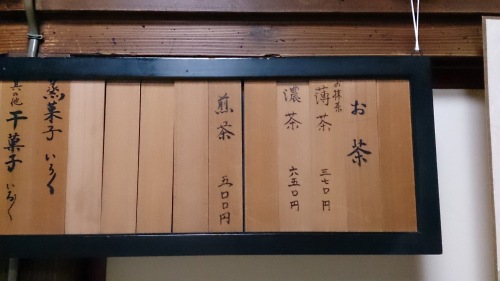 お茶
お抹茶
薄茶 三七〇円
濃茶 六五〇円
煎茶 五〇〇円
蒸菓子 いろ〱
其の他
干菓子 いろ〱